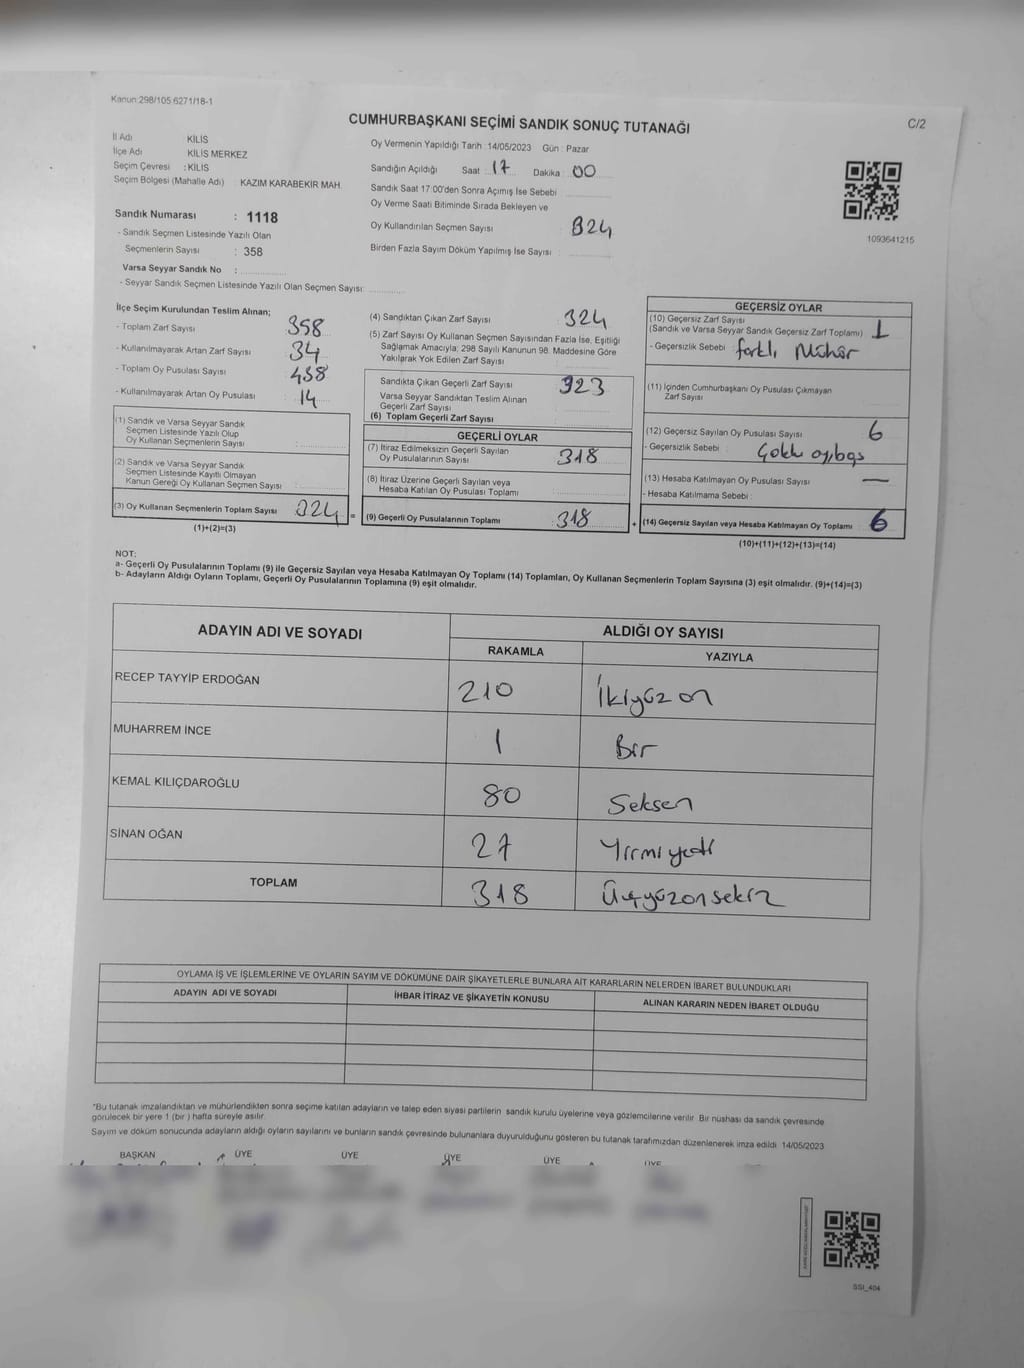 Kanun:298/105 6271/18-1
C/2
CUMHURBAŞKANI SEÇİMİ SANDIK SONUÇ TUTANAĞI
İl Adı KİLİS
İlçe Adı KİLİS MERKEZ
Seçim Çevresi : KİLİS
Seçim Bölgesi (Mahalle Adı) : KAZIM KARABEKİR MAH.
Sandık Numarası : 1118
- Sandık Seçmen Listesinde Yazılı Olan
Seçmenlerin Sayısı : 358
Varsa Seyyar Sandık No :
- Seyyar Sandık Seçmen Listesinde Yazılı Olan Seçmen Sayısı:
Oy Vermenin Yapıldığı Tarih :14/05/2023 Gün : Pazar
Sandığın Açıldığı Saat : 17 Dakika : 00
Sandık Saat 17:00'den Sonra Açımış İse Sebebi :
Oy Verme Saati Bitiminde Sırada Bekleyen ve
Oy Kullandırılan Seçmen Sayısı : 324
Birden Fazla Sayım Döküm Yapılmış İse Sayısı :
1093641215
İlçe Seçim Kurulundan Teslim Alınan;
- Toplam Zarf Sayısı : 358
- Kullanılmayarak Artan Zarf Sayısı : 34
- Toplam Oy Pusulası Sayısı : 458
- Kullanılmayarak Artan Oy Pusulası : 14
(1) Sandık ve Varsa Seyyar Sandık
Seçmen Listesinde Yazılı Olup
Oy Kullanan Seçmenlerin Sayısı :
(2) Sandık ve Varsa Seyyar Sandık
Seçmen Listesinde Kayıtlı Olmayan
Kanun Gereği Oy Kullanan Seçmen Sayısı :
(3) Oy Kullanan Seçmenlerin Toplam Sayısı 324 =
(1)+(2)=(3)
(4) Sandıktan Çıkan Zarf Sayısı : 324
(5) Zarf Sayısı Oy Kullanan Seçmen Sayısından Fazla İse, Eşitliği
Sağlamak Amacıyla; 298 Sayılı Kanunun 98. Maddesine Göre
Yakılarak Yok Edilen Zarf Sayısı :
Sandıkta Çıkan Geçerli Zarf Sayısı : 323
Varsa Seyyar Sandıktan Teslim Alınan
Geçerli Zarf Sayısı
(6) Toplam Geçerli Zarf Sayısı
GEÇERLİ OYLAR
(7) İtiraz Edilmeksizin Geçerli Sayılan
Oy Pusulalarının Sayısı : 318
(8) İtiraz Üzerine Geçerli Sayılan veya
Hesaba Katılan Oy Pusulası Toplamı
(9) Geçerli Oy Pusulalarının Toplamı : 318 +
GEÇERSİZ OYLAR
(10) Geçersiz Zarf Sayısı
(Sandık ve Varsa Seyyar Sandık Geçersiz Zarf Toplamı) : 1
- Geçersizlik Sebebi : farklı Mühür
(11) İçinden Cumhurbaşkanı Oy Pusulası Çıkmayan
Zarf Sayısı
(12) Geçersiz Sayılan Oy Pusulası Sayısı : 6
- Geçersizlik Sebebi :
(13) Hesaba Katılmayan Oy Pusulası Sayısı : —
- Hesaba Katılmama Sebebi :
(14) Geçersiz Sayılan veya Hesaba Katılmayan Oy Toplamı 6
(10)+(11)+(12)+(13)=(14)
NOT:
a- Geçerli Oy Pusulalarının Toplamı (9) ile Geçersiz Sayılan veya Hesaba Katılmayan Oy Toplamı (14) Toplamları, Oy Kullanan Seçmenlerin Toplam Sayısına (3) eşit olmalıdır. (9)+(14)=(3)
b- Adayların Aldığı Oyların Toplamı, Geçerli Oy Pusulalarının Toplamına (9) eşit olmalıdır.
ADAYIN ADI VE SOYADI ALDIĞI OY SAYISI
RAKAMLA YAZIYLA
RECEP TAYYİP ERDOĞAN 210 İkiyüz on
MUHARREM İNCE 1 Bir
KEMAL KILIÇDAROĞLU 80 Seksen
SİNAN OĞAN 27 Yirmi yedi
TOPLAM 318 Üçyüzonsekiz
OYLAMA İŞ VE İŞLEMLERİNE VE OYLARIN SAYIM VE DÖKÜMÜNE DAİR ŞİKAYETLERLE BUNLARA AİT KARARLARIN NELERDEN İBARET BULUNDUKLARI
ADAYIN ADI VE SOYADI İHBAR İTİRAZ VE ŞİKAYETİN KONUSU ALINAN KARARIN NEDEN İBARET OLDUĞU
*Bu tutanak imzalandıktan ve mühürlendikten sonra seçime katılan adayların ve talep eden siyasi partilerin sandık kurulu üyelerine veya gözlemcilerine verilir. Bir nüshası da sandık çevresinde
görülecek bir yere 1 (bir ) hafta süreyle asılır.
Sayım ve döküm sonucunda adayların aldığı oyların sayılarını ve bunların sandık çevresinde bulunanlara duyurulduğunu gösteren bu tutanak tarafımızdan düzenlenerek imza edildi. 14/05/2023
BAŞKAN ÜYE ÜYE ÜYE ÜYE ÜYE
SSI_404